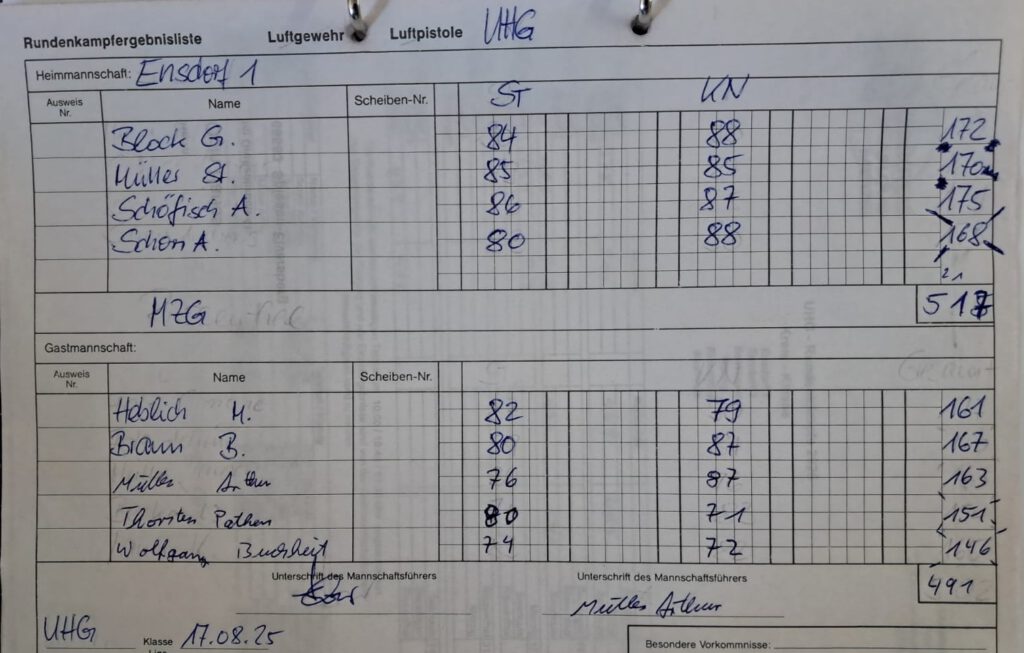 Rundenkampfergebnisliste Luftgewehr Luftpistole UHG
Heimmannschaft: Ensdorf 1
Ausweis Nr. Name Scheiben-Nr. ST KN
Block G. 84 88 172
Müller St. 85 85 170
Schöfisch A. 86 87 175
Schon A. 80 88 168
21
MZG 517
Gastmannschaft:
Ausweis Nr. Name Scheiben-Nr.
Heblich M. 82 79 161
Braun B. 80 87 167
Müller Arthur 76 87 163
Thorsten Pathen 80 71 151
Wolfgang Buchheit 74 72 146
Unterschrift des Mannschaftsführers Unterschrift des Mannschaftsführers 491
Müller Arthur
UHG Klasse 17.08.25
Besondere Vorkommnisse: